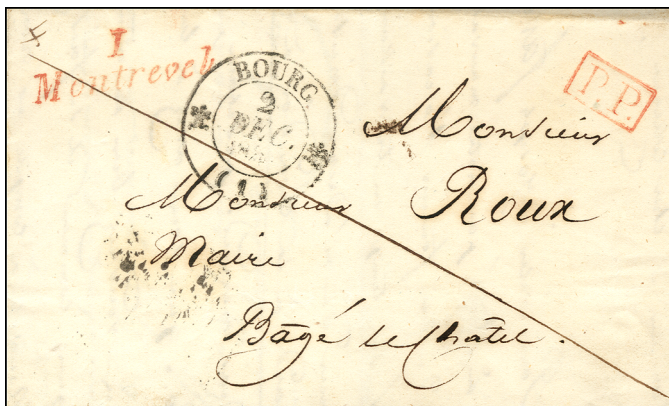 1
Montrevel
BOURG
2
DEC.
(1)
P.P.
Monsieur
Roux
Monsieur
Maire
Bâgé le Châtel.